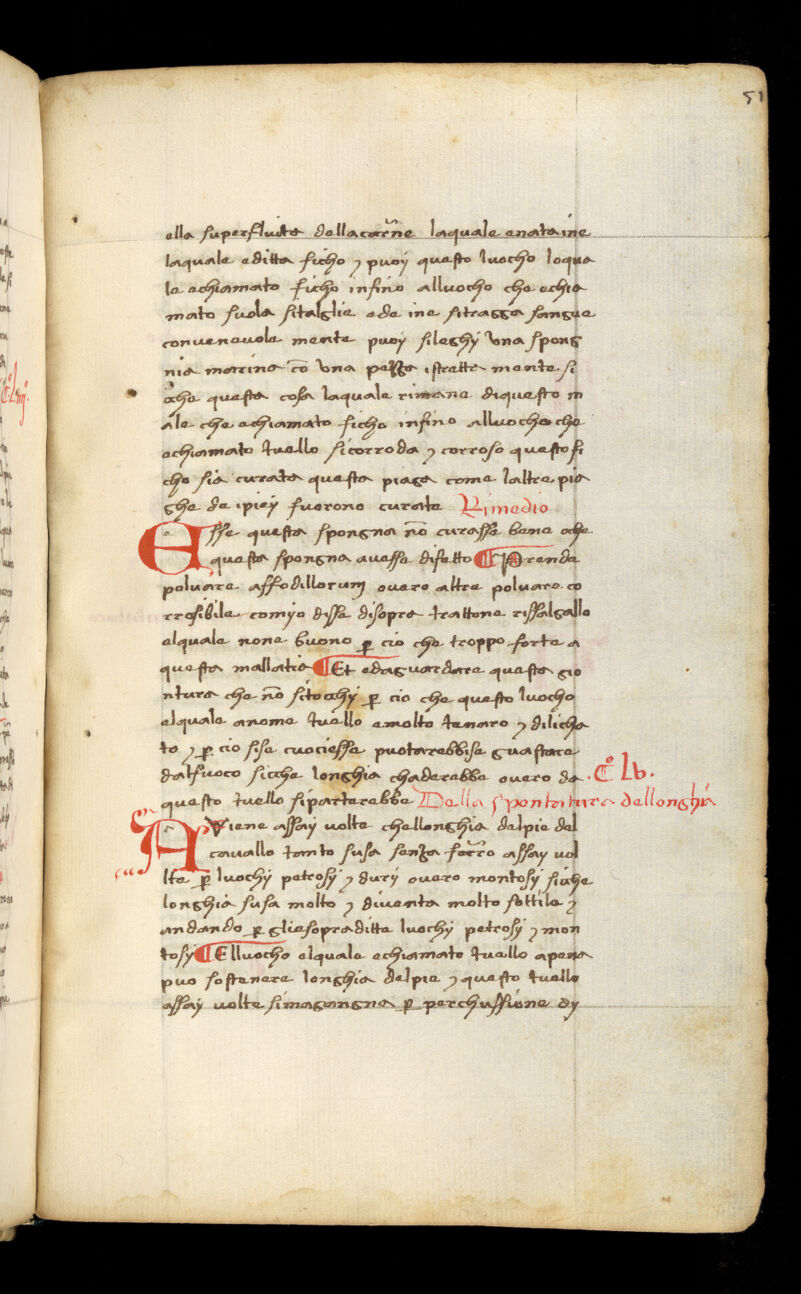 51
ella superfluita dellacarne laquale enata ine
laquale editta ficho ⁊ puoy questo luocho loqua
le echiamato ficho infino alluocho che echia
mato suola sitalglie ede ine sitragga sangue
conueneuole mente puoy sileghy vna spong
nia marina cō vna pezza istratta mente si
che questa cosa laquale rimane diquesto m
ale che echiamato ficho infino alluocho che
echiamato tuello sicorroda ⁊ corroso questo fi
cho sia curata questa piaga come laltre pia
ghe de ipiey fuorono curate Rimedio
Esse questa spongna nō curasse bene oche
questa spongna auesse difetto ¶ Prende
poluere affodillorum ouero altre poluere co
rrosibile comyo disse disopra trattone rissalgallo
elquale none buono ꝑ cio che troppo forte a
questa mallatia ¶ Et edaguardare questa gio
ntura che nō sitochy ꝑ cio che questo luocho
elquale anome tuello emolto tenero ⁊ dilicha
to ⁊ ꝑ cio sise cuociesse puoterebbise guastare
dalfuoco sicche longhia chaderebbe ouero da
questo tuello siparterebbe Della spontatura dellonghia
.C° Lv.
Aviene assay uolte chellonghia delpie del
cauallo tanto susa senza ferro assay uol
lte ꝑ luochy petrosy ⁊ dury ouero montosy siche
longhia susa molto ⁊ diuenta molto sottile ⁊
andando ꝑ gliesopraditte luochy petrosy ⁊ mon
tosy ¶ Elluocho elquale echiamato tuello apena
puo sostenere longhia delpie ⁊ questo tuello
assay uolte simagangna ꝑ perchussione dy